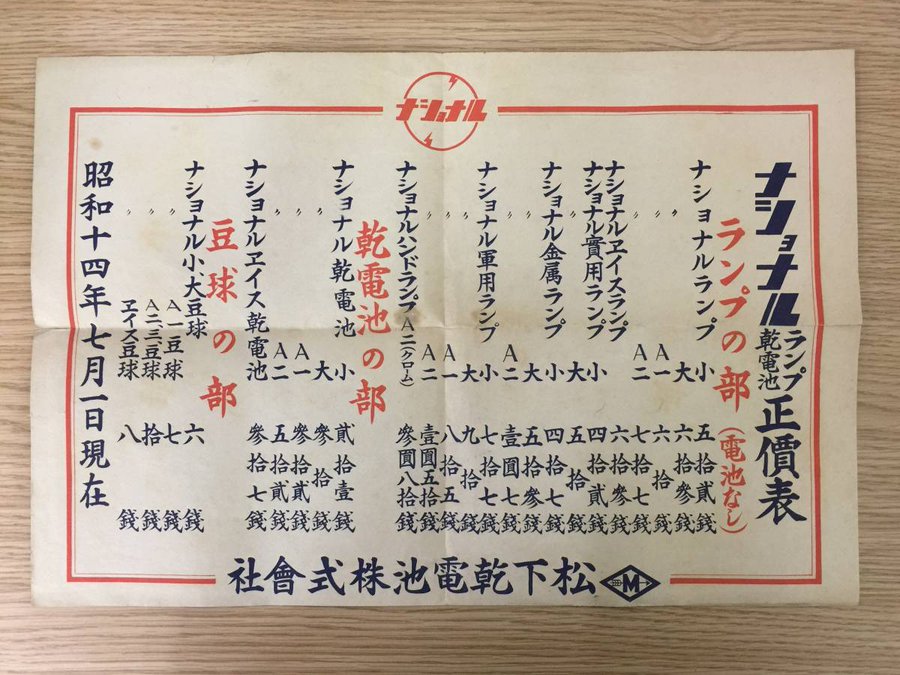 ナショナル
ナショナル
ランプ
乾電池
正價表
ランプの部(電池なし)
ナショナルランプ 小 五拾貳錢
〃 大 六拾參錢
〃 A一 六拾錢
〃 A二 七拾七錢
ナショナルヱイスランプ 六拾參錢
ナショナル實用ランプ 小 四拾貳錢
大 五拾錢
ナショナル金属ランプ 小 四拾七錢
〃 大 五拾參錢
〃 A二 壹圓七錢
ナショナル軍用ランプ 小 七拾七錢
〃 大 九拾錢
〃 A一 八拾五錢
〃 A二 壹圓五拾錢
ナショナルハンドランプA二(クローム) 參圓八拾錢
乾電池の部
ナショナル乾電池 小 貳拾壹錢
〃 大 參拾錢
〃 A一 參拾貳錢
〃 A二 五拾貳錢
ナショナルヱイス乾電池 參拾七錢
豆球の部
ナショナル小、大豆球 六錢
〃 A一豆球 七錢
〃 A二、三豆球 拾錢
〃 ヱイス豆球 八錢
昭和十四年七月一日現在
M松下乾電池株式會社